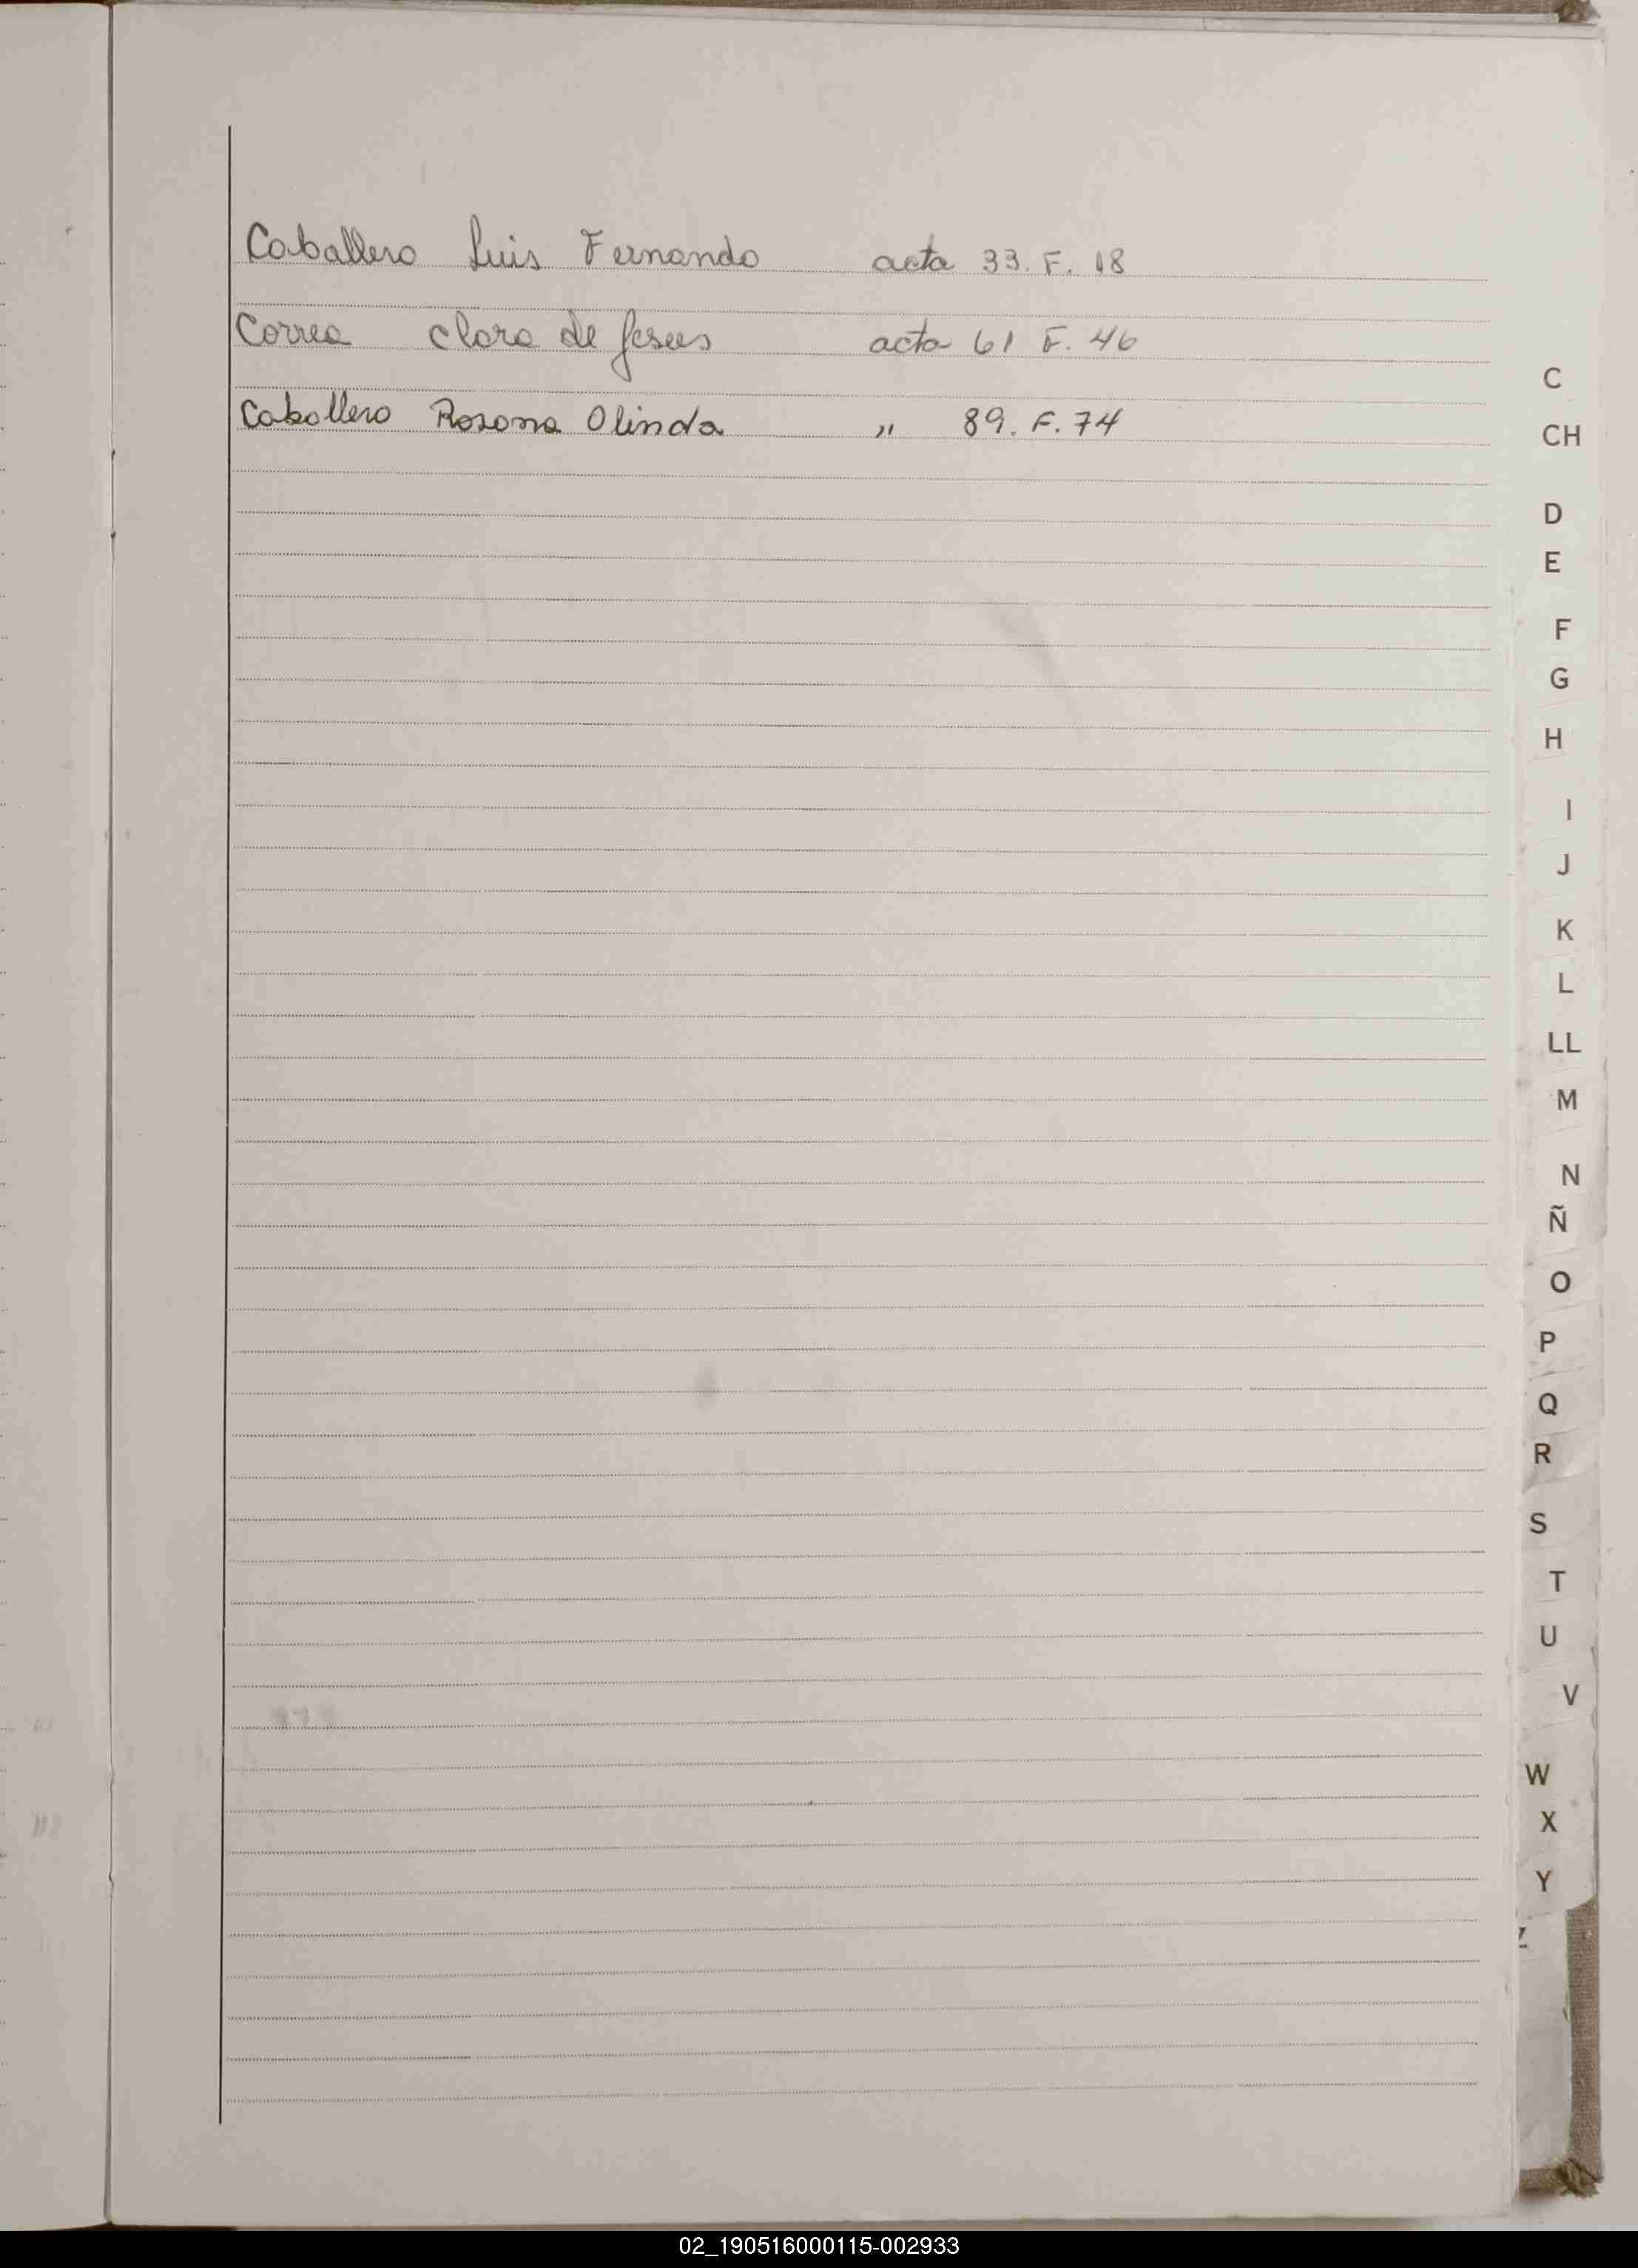 Caballero Luis Fernando acta 33. F. 18
Correa Clara de Jesus acta 61 F. 46
Caballero Rosana Olinda " 89. F. 74
C
CH
D
E
F
G
H
I
J
K
L
LL
M
N
Ñ
O
P
Q
R
S
T
U
V
W
X
Y
Z
02_190516000115-002933